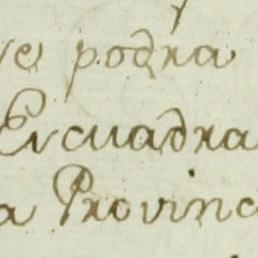 ve podra
Escuadra
a Provinc